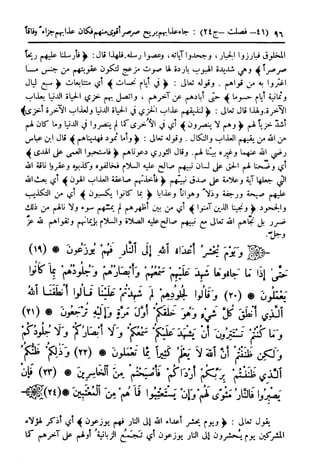 ٩٦ (٤١- فصلت - ج٢٤) : جاء عذابهم بريح صرصر أقوى منهم فكان عذابهم جزاء وفاقاً
المخلوق فبارزوا الجبار، وجحدوا آياته، وعصوا رسله. فلهذا قال: ﴿ فأرسلنا عليهم ريحاً
صرصراً ﴾ وهي شديدة الهبوب باردة لها صوت مزعج لتكون عقوبتهم من جنس ما
اغتروا به من قواهم . وقوله تعالى : ﴿ في أيام نحسات ﴾ أي متتابعات ﴿ سبع ليال
وثمانية أيام حسوما ﴾ حتى أبادهم عن آخرهم ، واتصل بهم خزي الدنيا بعذاب
الآخرة. ولهذا قال تعالى : ﴿ لنذيقهم عذاب الخزي في الحياة الدنيا ولعذاب الآخرة أخزى ﴾
أشد خزياً لهم ﴿ وهم لا ينصرون ﴾ أي في الأخرى كما لم ينصروا في الدنيا وما كان لهم
من الله من يقيهم العذاب والنكال . وقوله تعالى : ﴿ وأما ثمود فهديناهم ﴾ قال ابن عباس
رضي الله عنهما وغيره بينا لهم. وقال الثوري دعوناهم ﴿ فاستحبوا العمى على الهدى ﴾
أي وضحنا لهم الحق على لسان نبيهم صالح عليه السلام فخالفوه وكذبوه وعقروا ناقة الله
التي جعلها آية وعلامة على صدق نبيهم ﴿ فأخذتهم صاعقة العذاب الهون ﴾ أي بعث الله
عليهم صيحة ورجفة وذلاً وهواناً وعذابا ﴿ بما كانوا يكسبون ﴾ أي من التكذيب
والجحود ﴿ ونجينا الذين آمنوا ﴾ أي من بين أظهرهم لم يمسهم سوء ولا نالهم من ذلك
ضرر بل نجاهم الله تعالى مع نبيهم صالح عليه الصلاة والسلام بإيمانهم وتقواهم لله عزّ
وجلّ.
وَيَوْمَ يُحْشَرُ أَعْدَاءُ اللَّهِ إِلَى النَّارِ فَهُمْ يُوزَعُونَ * (١٩)
حَتَّى إِذَا مَا جَاءُوهَا شَهِدَ عَلَيْهِمْ سَمْعُهُمْ وَأَبْصَارُهُمْ وَجُلُودُهُمْ بِمَا كَانُوا
يَعْمَلُونَ * (٢٠) وَقَالُوا لِجُلُودِهِمْ لِمَ شَهِدتُّمْ عَلَيْنَا قَالُوا أَنطَقَنَا اللَّهُ
الَّذِي أَنطَقَ كُلَّ شَيْءٍ وَهُوَ خَلَقَكُمْ أَوَّلَ مَرَّةٍ وَإِلَيْهِ تُرْجَعُونَ * (٢١)
وَمَا كُنتُمْ تَسْتَتِرُونَ أَن يَشْهَدَ عَلَيْكُمْ سَمْعُكُمْ وَلَا أَبْصَارُكُمْ وَلَا جُلُودُكُمْ
وَلَكِن ظَنَنتُمْ أَنَّ اللَّهَ لَا يَعْلَمُ كَثِيرًا مِّمَّا تَعْمَلُونَ * (٢٢) وَذَلِكُمْ ظَنُّكُمُ
الَّذِي ظَنَنتُم بِرَبِّكُمْ أَرْدَاكُمْ فَأَصْبَحْتُم مِّنَ الْخَاسِرِينَ * (٢٣) فَإِن
يَصْبِرُوا فَالنَّارُ مَثْوًى لَّهُمْ وَإِن يَسْتَعْتِبُوا فَمَا هُم مِّنَ الْمُعْتَبِينَ * (٢٤)
يقول تعالى : ﴿ ويوم يحشر أعداء الله إلى النار فهم يوزعون ﴾ أي أذكر لهؤلاء
المشركين يوم يُحشرون إلى النار يوزعون أي تجمع الزبانية أولهم على آخرهم كما